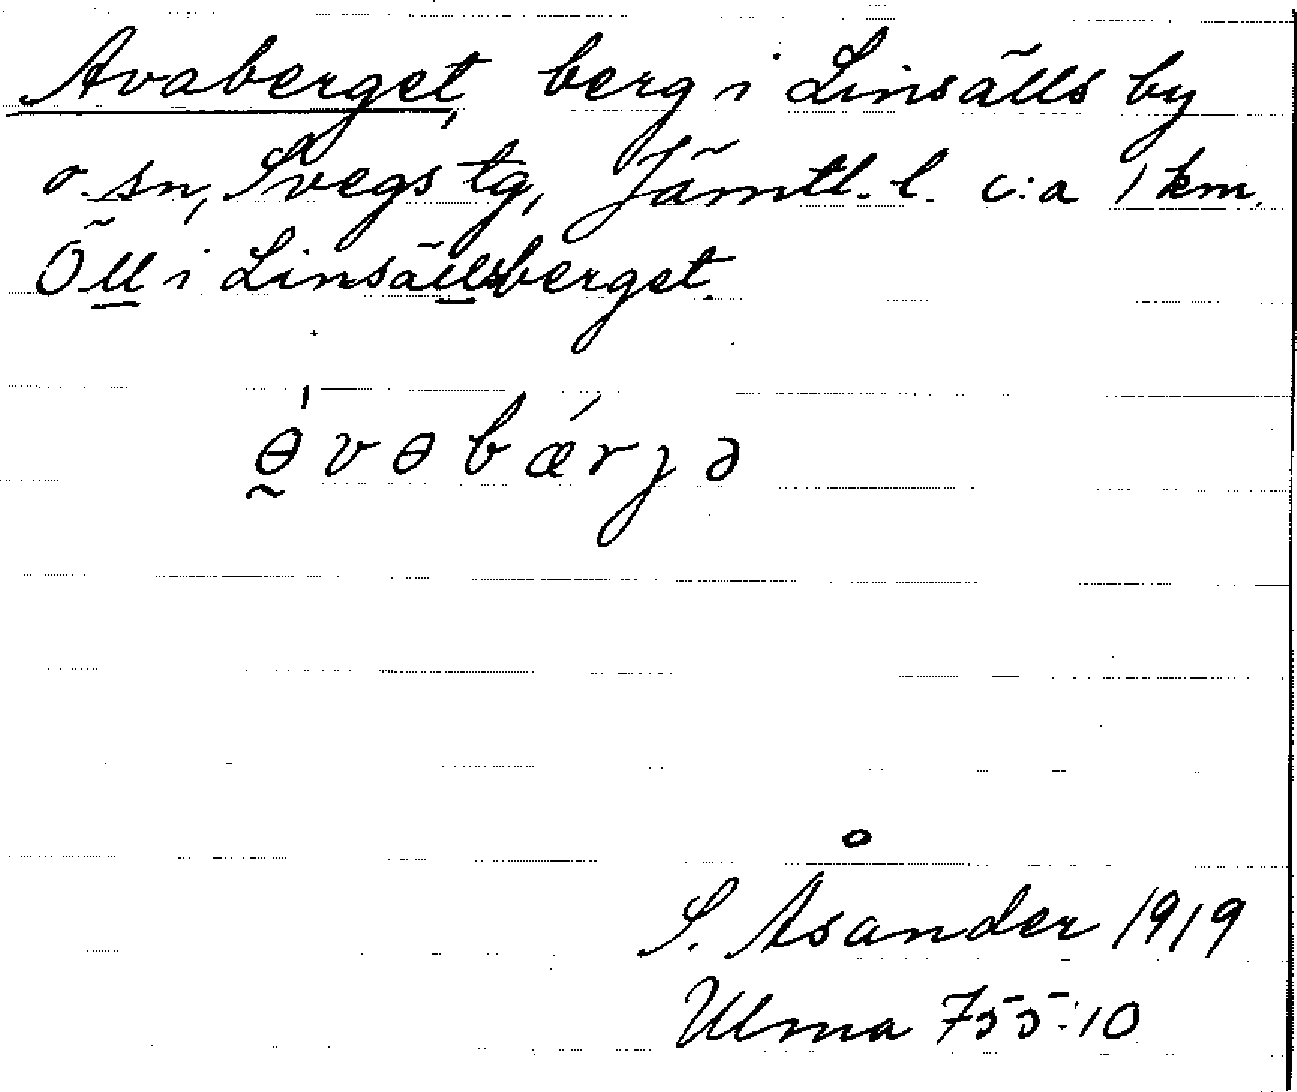 Avaberget, berg i Linsälls by
o. sn, Svegs tg, Jämtl. l. c:a 1 km.
Ö ll i Linsällsberget.
ɵ̰́vɵbǽrȷə
S. Åsander 1919
Ulma 755:10